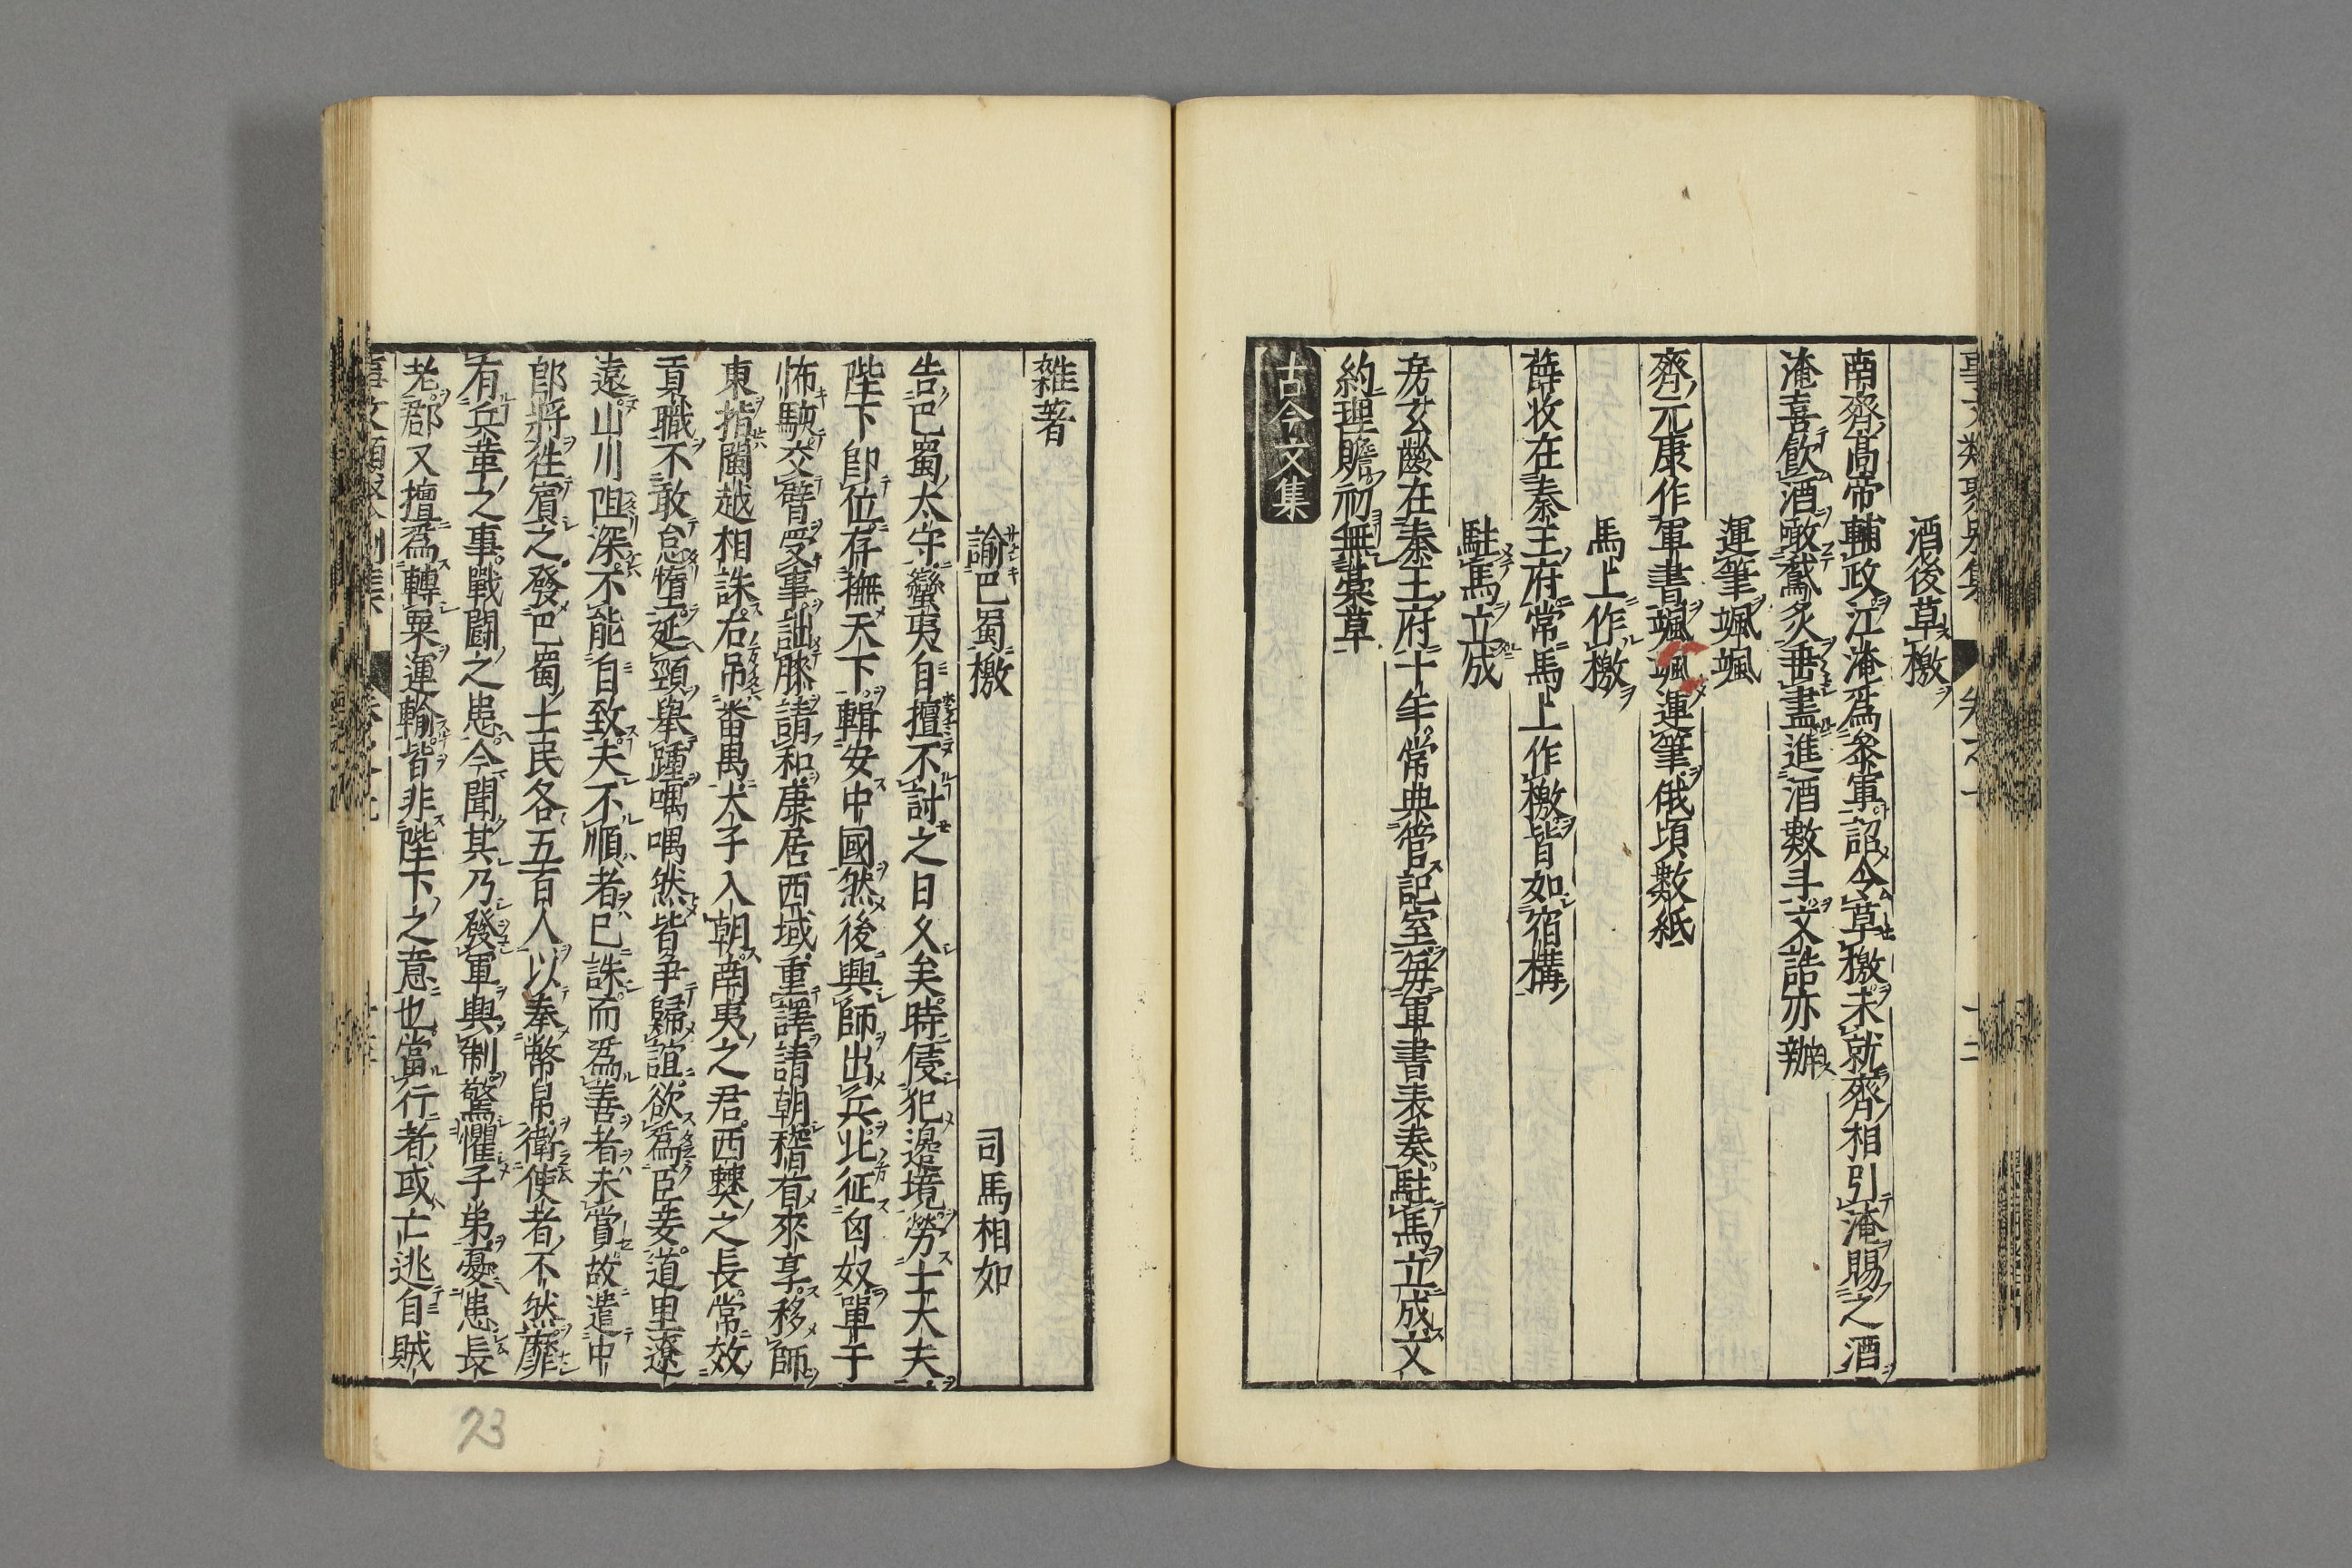 酒後草檄
南齊高帝輔政江淹爲參軍詔令草檄未就齊相引淹賜之酒
淹喜飮酒噉鵞炙垂盡進酒數斗文誥亦辦
運筆颯颯
齊元康作軍書颯颯運筆俄頃數紙
馬上作檄
薛收在秦王府常馬上作檄皆如宿構
駐馬立成
房玄齡在秦王府十年常典管記室每軍書表奏駐馬立成文
約理贍初無藁草
古今文集
雜著
諭巴蜀檄 司馬相如
告巴蜀太守蠻夷自擅不討之日久矣時侵犯邊境勞士大夫
陛下卽位存撫天下輯安中國然後興師出兵北征匈奴單于
怖駭交臂受事詘膝請和康居西域重譯請朝稽首來享移師
東指閩越相誅右吊番禺太子入朝南夷之君西僰之長常效
貢職不敢怠惰延頸舉踵喁喁然皆爭歸誼欲爲臣妾道里遼
遠山川阻深不能自致夫不順者已誅而爲善者未賞故遣中
郎將往賓之發巴蜀士民各五百人以奉幣帛衛使者不然靡
有兵革之事戰鬪之患今聞其乃發軍興制驚懼子弟憂患長
老郡又擅爲轉粟運輸皆非陛下之意也當行者或亡逃自賊
23